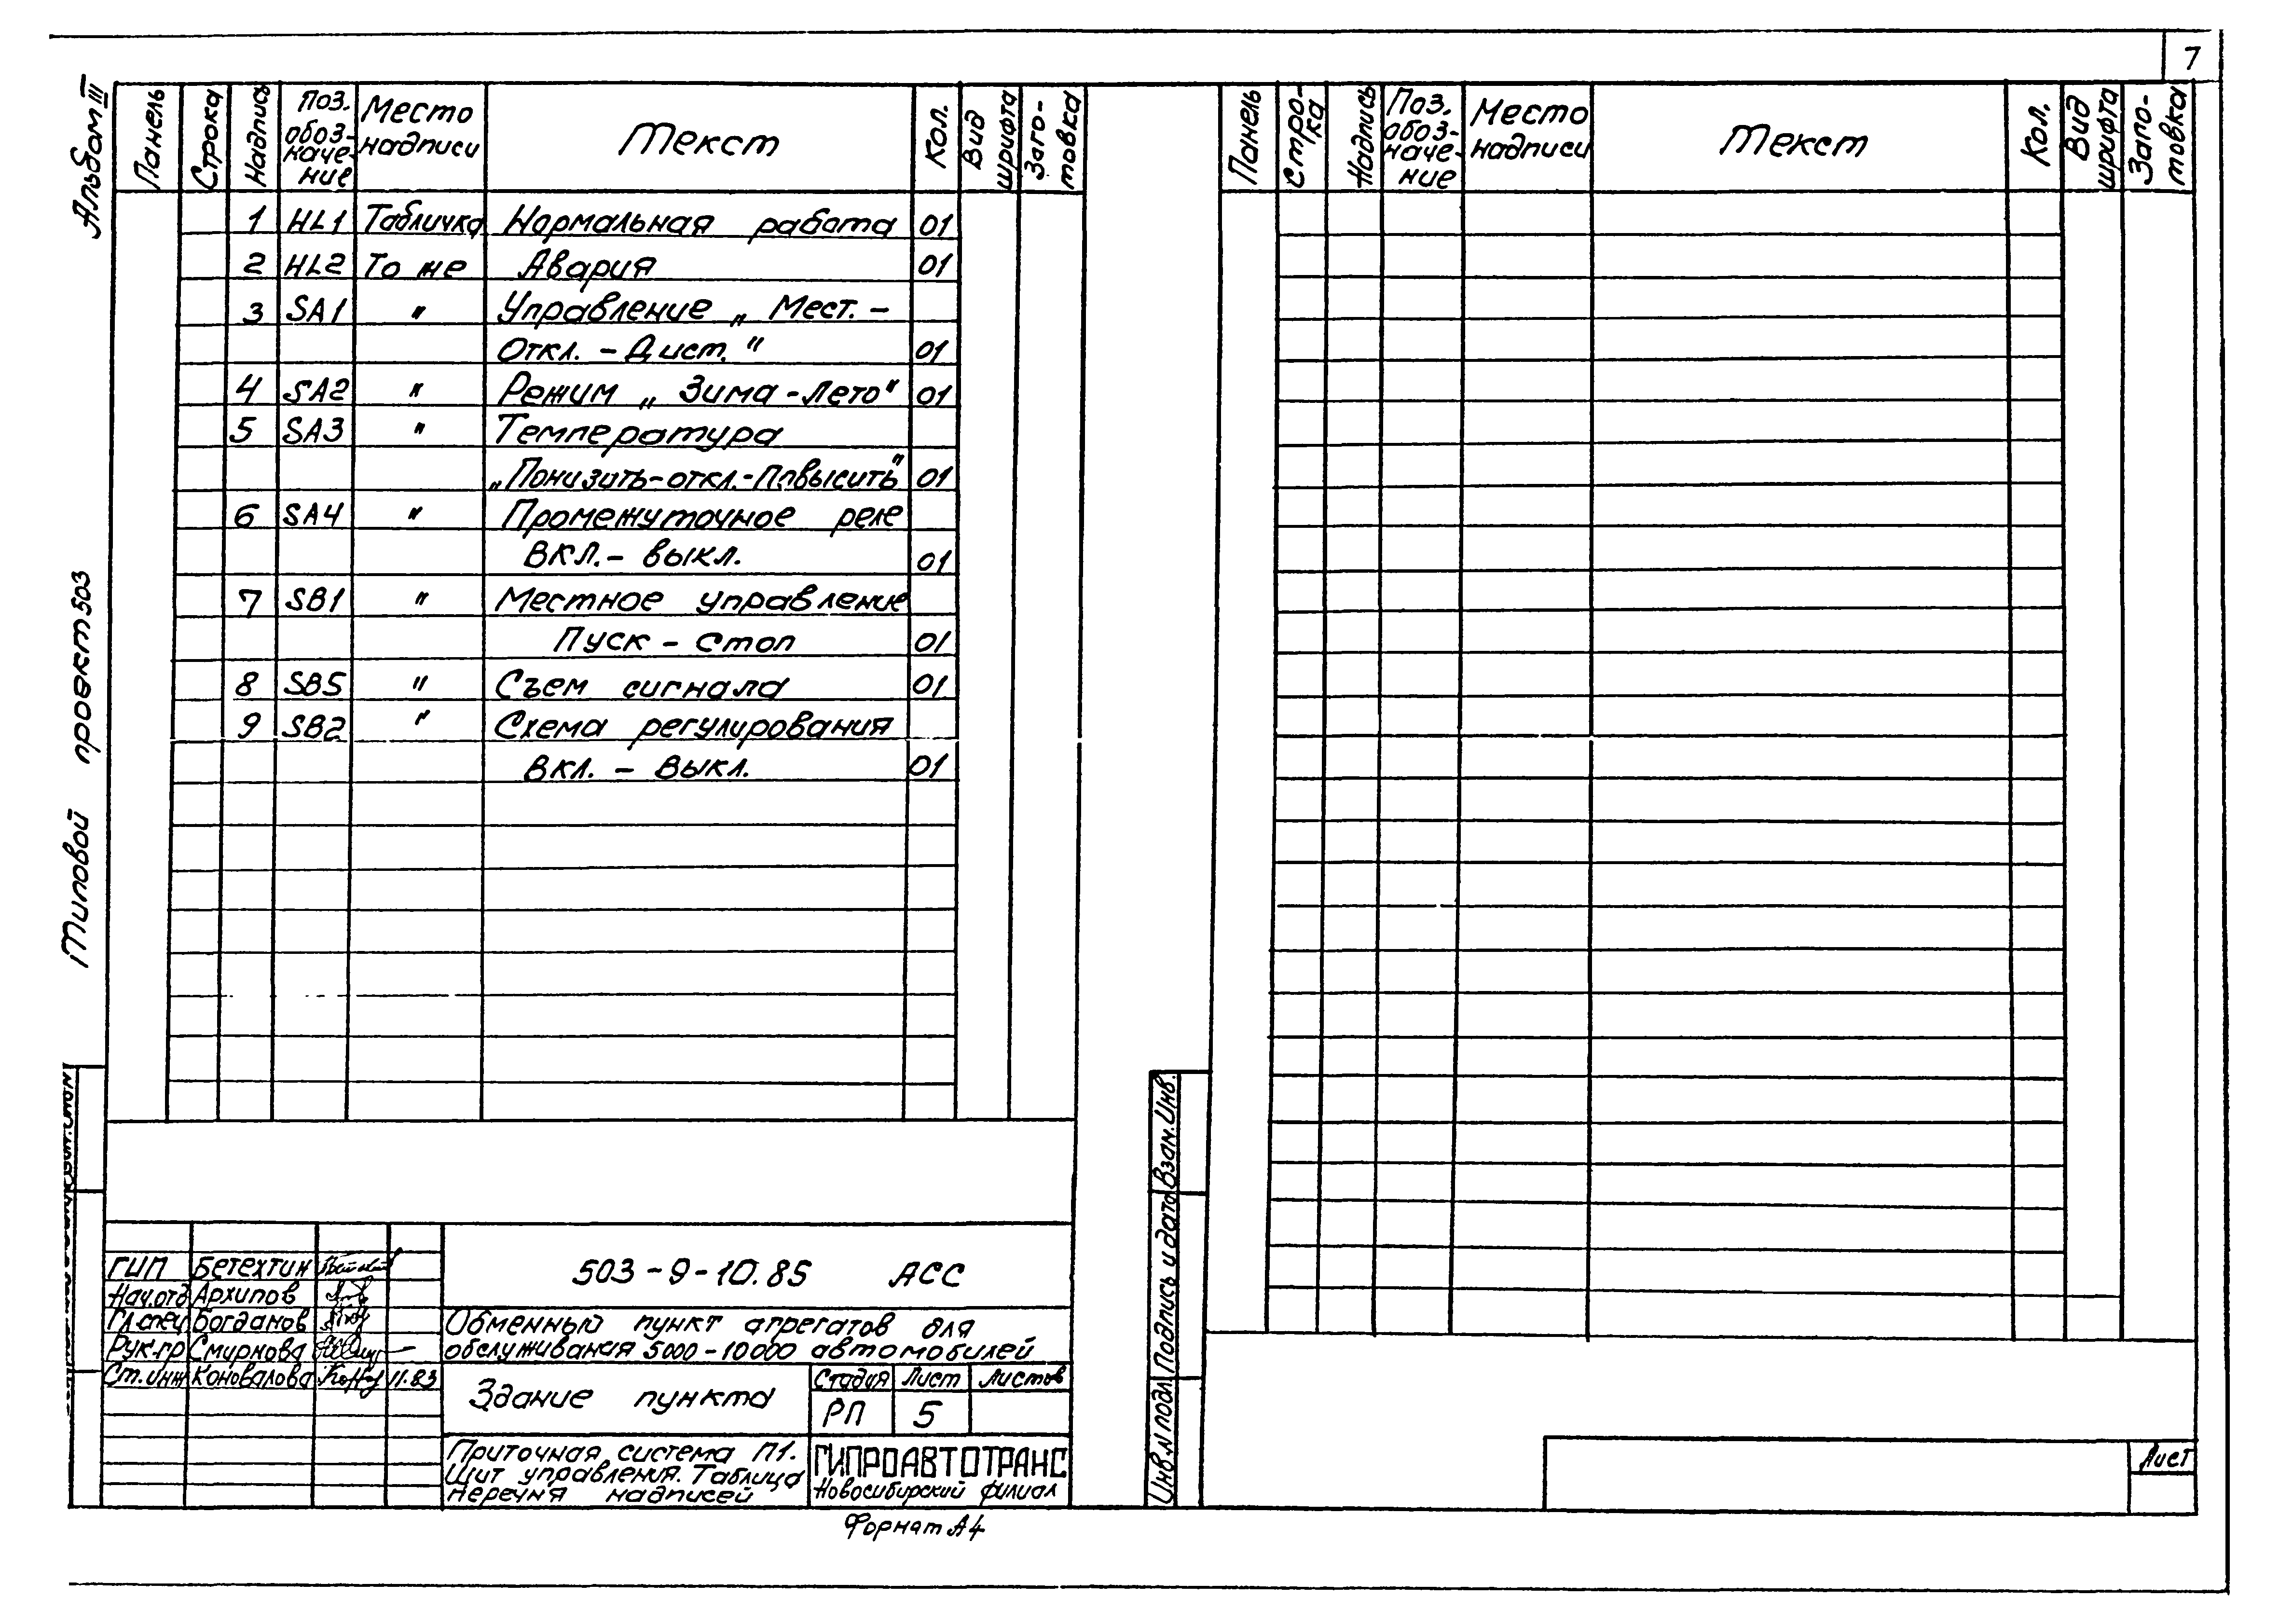 7
Альбом III
Типовой проект 503
Панель Строка Надпись Поз. обозначение Место надписи Текст Кол. Вид шрифта Заготовка
1 HL1 Табличка Нормальная работа 01
2 HL2 То же Авария 01
3 SA1 " Управление „Мест.-
Откл. - Дист." 01
4 SA2 " Режим „Зима-лето" 01
5 SA3 " Температура
„Понизить-откл.-Повысить" 01
6 SA4 " Промежуточное реле
Вкл. - выкл. 01
7 SB1 " Местное управление
Пуск - Стоп 01
8 SB5 " Съем сигнала 01
9 SB2 " Схема регулирования
Вкл. - Выкл. 01
503-9-10.85 АСС
ГИП Бетехтин
Нач.отд Архипов
Гл.спец Богданов
Рук.гр Смирнова
Ст.инж Коновалова 11.83
Обменный пункт агрегатов для
обслуживания 5000-10000 автомобилей
Здание пункта
Стадия Лист Листов
РП 5
Приточная система П1.
Щит управления. Таблица
перечня надписей
ГИПРОАВТОТРАНС
Новосибирский филиал
Формат А4
Панель Стро-ка Надпись Поз. обоз-наче-ние Место надписи Текст Кол. Вид шрифта Заго-товка
Инв.N подл. Подпись и дата Взам.Инв.
Лист